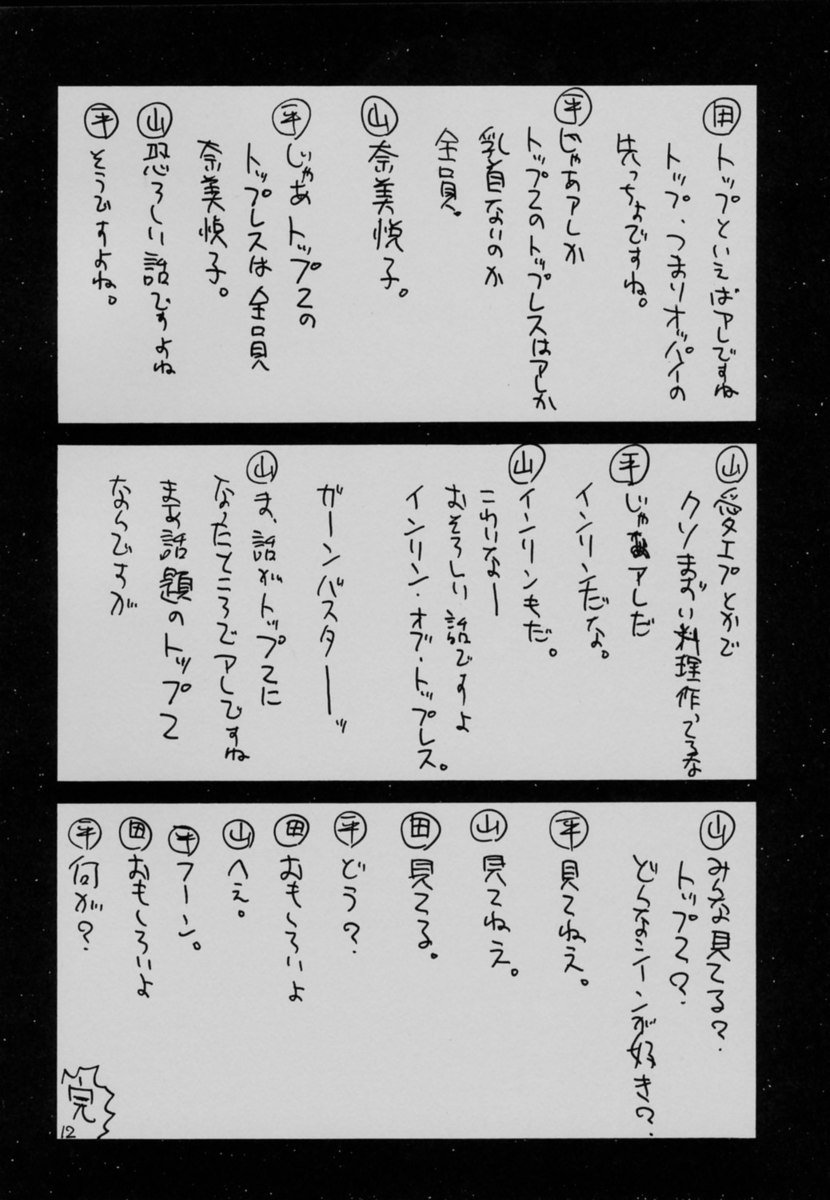 田 トップといえばアレですね
トップ、つまりオッパイの
先っちょですね。
平 じゃあアレか
トップ2のトップレスはアレか
乳首ないのか
全員。
山 奈美悦子。
平 じゃあトップ2の
トップレスは全員
奈美悦子。
山 恐ろしい話ですよね
平 そうですよね。
山 愛エプとかで
クソまずい料理作ってるな
平 じゃあアレだ
インリンだな。
山 インリンもだ。
こわいなー
おそろしい話ですよ
インリン・オブ・トップレス。
ガーンバスターーッ
山 ま、話がトップ2に
なったところでアレですね
まあ話題のトップ2
なんですが
山 みんな見てる?
トップ2?
どんなシーンが好き?
平 見てねえ。
山 見てねえ。
田 見てる。
平 どう?
田 おもしろいよ
山 へぇ。
平 フーン。
田 おもしろいよ
平 何が?
完
12